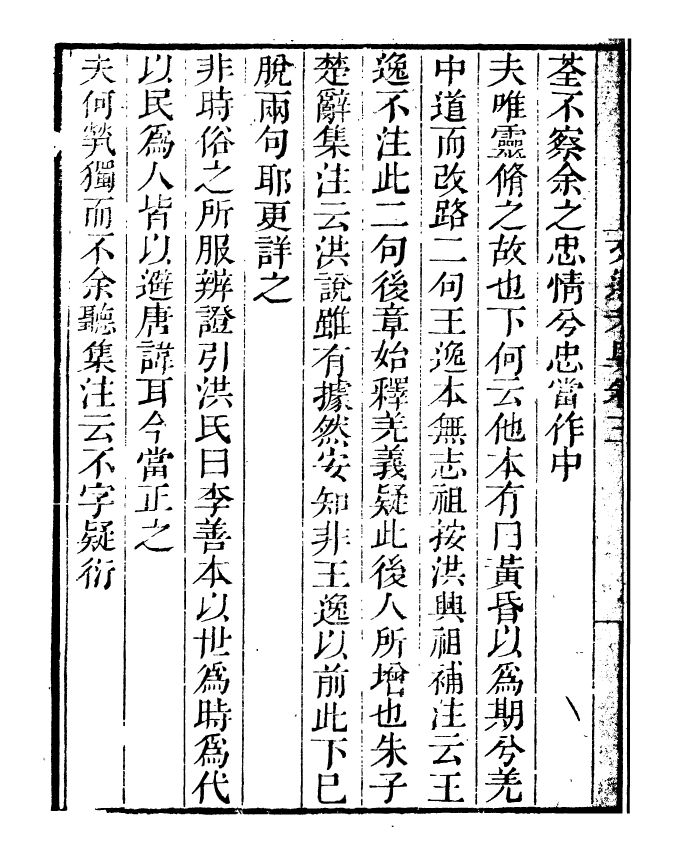 文選考異卷三
荃不察余之忠情兮忠當作中
夫唯靈脩之故也下何云他本有曰黃昏以爲期兮羌
中道而改路二句王逸本無志祖按洪興祖補注云王
逸不注此二句後章始釋羌義疑此後人所增也朱子
楚辭集注云洪說雖有據然安知非王逸以前此下已
脫兩句耶更詳之
非時俗之所服辨證引洪氏曰李善本以世爲時爲代
以民爲人皆以避唐諱耳今當正之
夫何煢獨而不余聽集注云不字疑衍